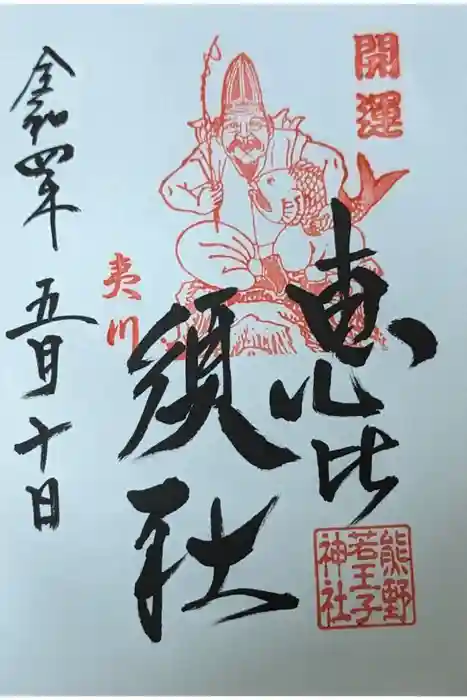 開運
恵比
須社
夷川
令和四年 五月十日
熊野
若王子
神社